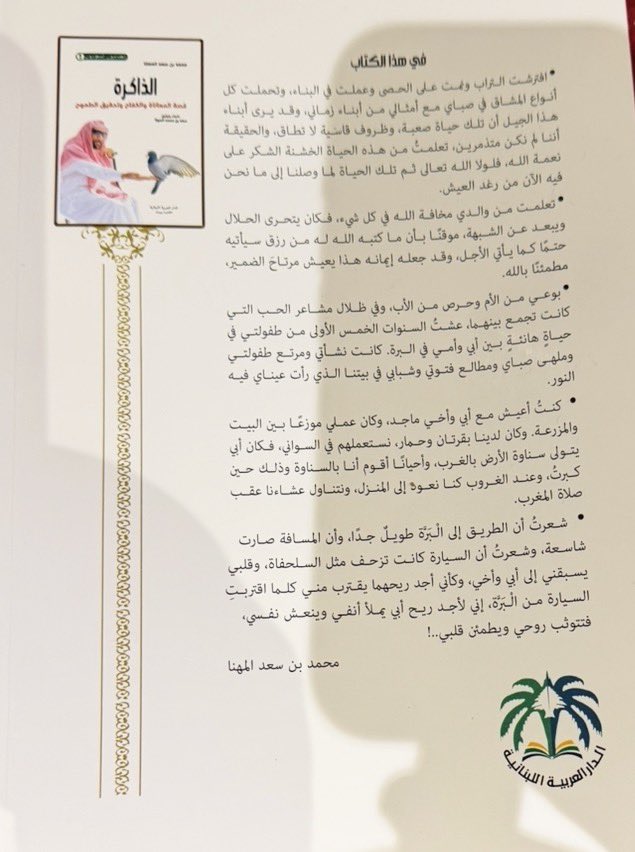 الذاكرة
قصة المعاناة والكفاح وتحقيق الطموح
في هذا الكتاب
• افترشت التراب ونمت على الحصى وعملت في البناء، وتحملت كل
أنواع المشاق في صباي مع أمثالي من أبناء زماني، وقد يرى أبناء
هذا الجيل أن تلك حياة صعبة، وظروف قاسية لا تطاق، والحقيقة
أننا لم نكن متذمرين، تعلمتُ من هذه الحياة الخشنة الشكر على
نعمة الله، فلولا الله تعالى ثم تلك الحياة لما وصلنا إلى ما نحن
فيه الآن من رغد العيش.
• تعلمت من والدي مخافة الله في كل شيء، فكان يتحرى الحلال
ويبعد عن الشبهة، موقنًا بأن ما كتبه الله له من رزق سيأتيه
حتمًا كما يأتي الأجل، وقد جعله إيمانه هذا يعيش مرتاح الضمير،
مطمئنًا بالله.
• بوعي من الأم وحرص من الأب، وفي ظلال مشاعر الحب التي
كانت تجمع بينهما، عشتُ السنوات الخمس الأولى من طفولتي في
حياةٍ هانئةٍ بين أبي وأمي في البرة. كانت نشأتي ومرتع طفولتي
وملهى صباي ومطالع فتوتي وشبابي في بيتنا الذي رأت عيناي فيه
النور.
• كنتُ أعيش مع أبي وأخي ماجد، وكان عملي موزعًا بين البيت
والمزرعة. وكان لدينا بقرتان وحمار، نستعملهم في السواني، فكان أبي
يتولى سناوة الأرض بالغرب، وأحيانًا أقوم أنا بالسناوة وذلك حين
كبرتُ، وعند الغروب كنا نعودُ إلى المنزل، ونتناول عشاءنا عقب
صلاة المغرب.
• شعرتُ أن الطريق إلى الْبَرَّة طويلٌ جدًا، وأن المسافة صارت
شاسعة، وشعرتُ أن السيارة كانت تزحف مثل السلحفاة، وقلبي
يسبقني إلى أبي وأخي، وكأني أجد ريحهما يقترب مني كلما اقتربتِ
السيارة من الْبَرَّة، إني لأجد ريح أبي يملأ أنفي وينعش نفسي،
فتتوثب روحي ويطمئن قلبي..!
محمد بن سعد المهنا
الدار العربية اللبنانية